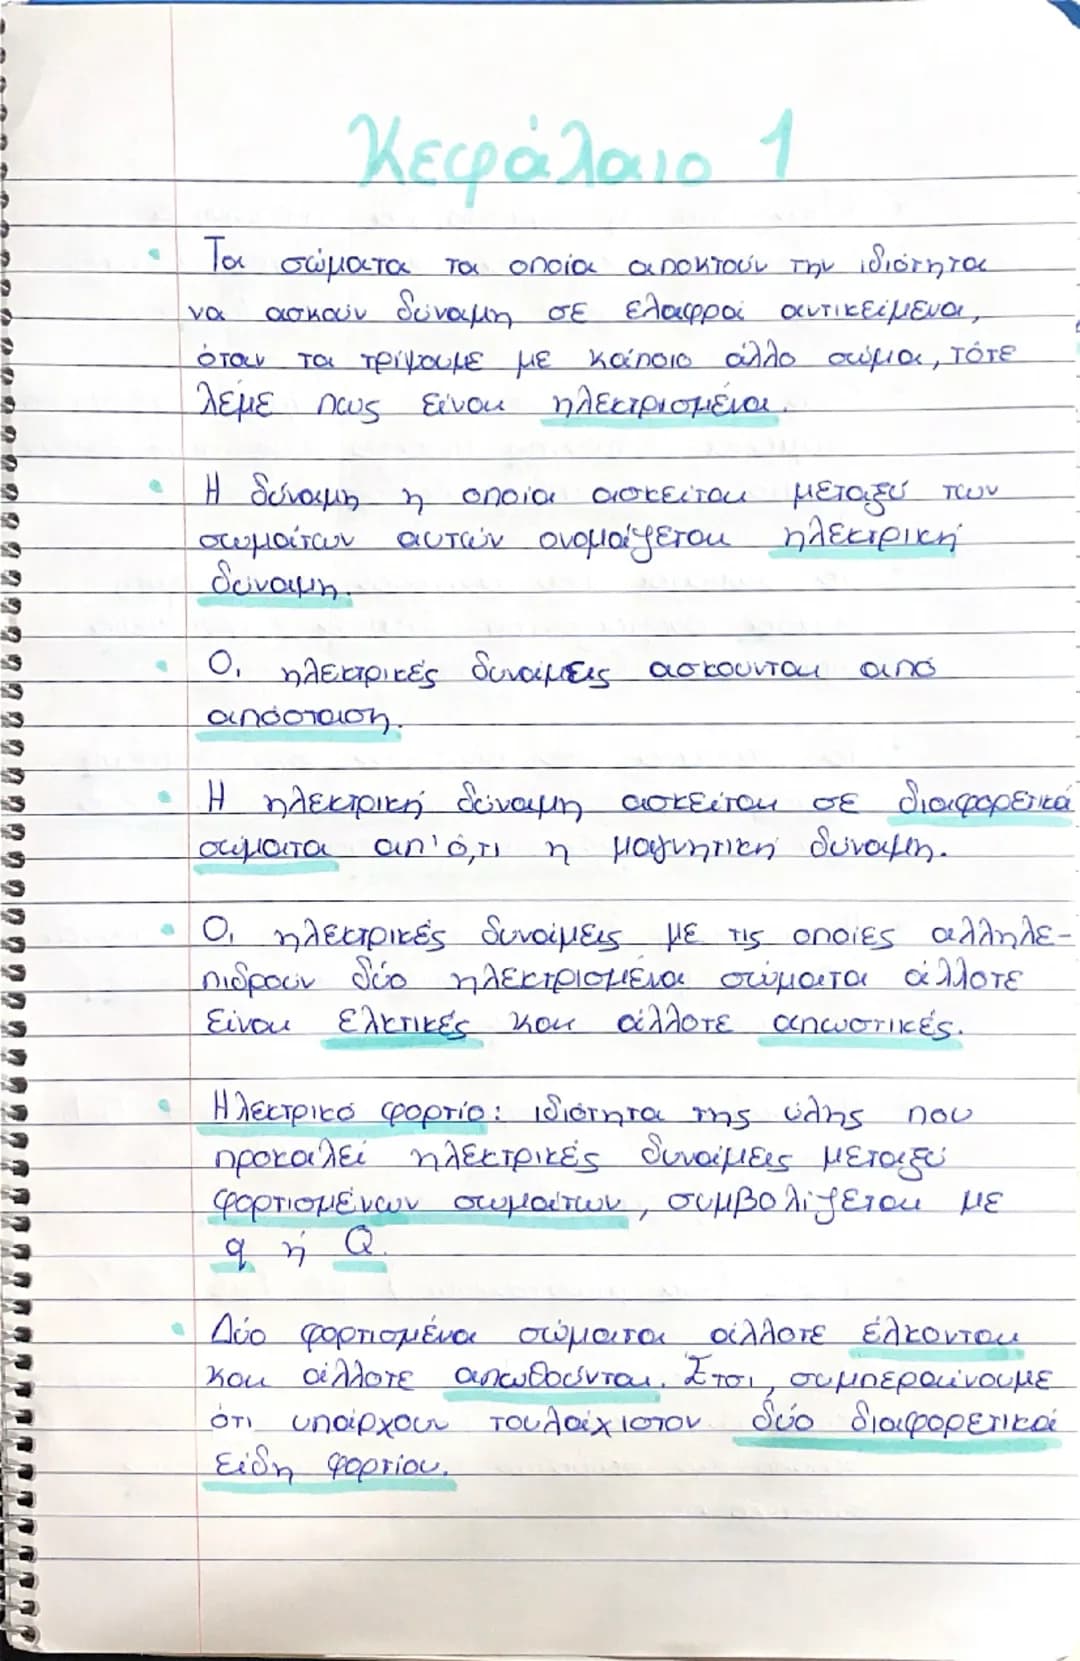 Κεφάλαιο 1
Τα σώματα τα οποία αποκτούν την ιδιότητα
να ασκούν δύναμη σε ελαφρά αντικείμενα,
όταν τα τρίψουμε με κάποιο άλλο σώμα, τότε
λέμε πως είναι ηλεκτρισμένα.
Η δύναμη η οποία ασκείται μεταξύ των
σωμάτων αυτών ονομάζεται ηλεκτρική
δύναμη.
Οι ηλεκτρικές δυνάμεις ασκούνται από
απόσταση.
Η ηλεκτρική δύναμη ασκείται σε διαφορετικά
σώματα απ' ό,τι η μαγνητική δύναμη.
Οι ηλεκτρικές δυνάμεις με τις οποίες αλληλε-
πιδρούν δύο ηλεκτρισμένα σώματα άλλοτε
είναι ελκτικές και άλλοτε απωστικές.
Ηλεκτρικό φορτίο: ιδιότητα της ύλης που
προκαλεί ηλεκτρικές δυνάμεις μεταξύ
φορτισμένων σωμάτων, συμβολίζεται με
q ή Q.
Δύο φορτισμένα σώματα άλλοτε έλκονται
και άλλοτε απωθούνται. Έτσι, συμπεραίνουμε
ότι υπάρχουν τουλάχιστον δύο διαφορετικά
είδη φορτίου.